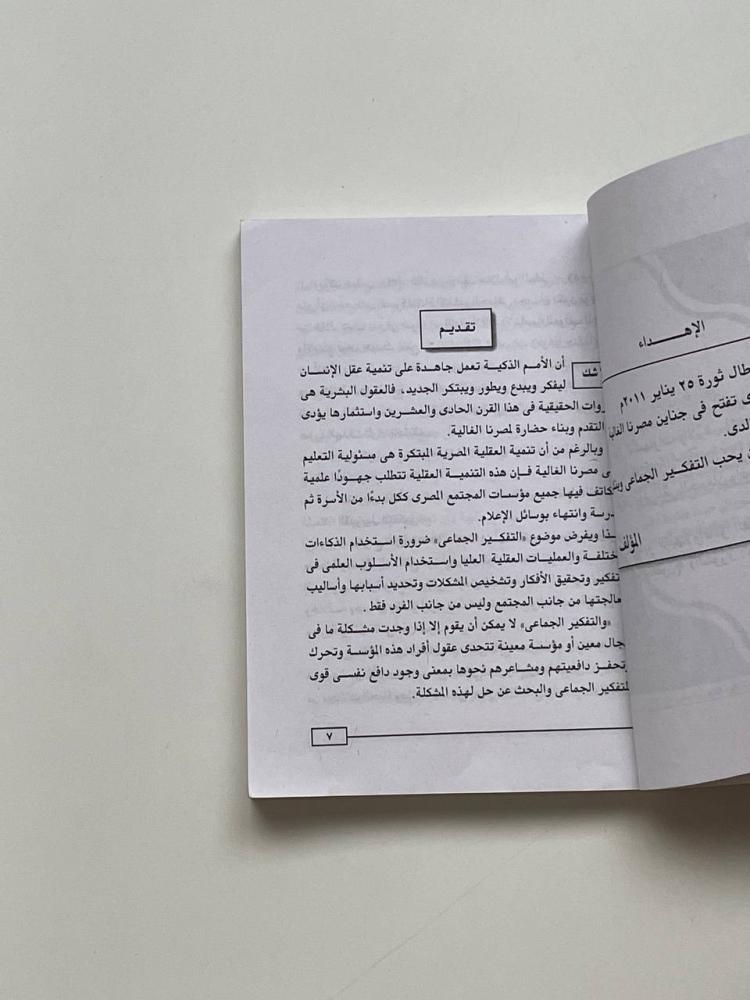 الإهــــداء
طال ثورة ٢٥ يناير ٢٠١١م
ى تفتح فى جناين مصرنا الغالية
لدى.
ن يحب التفكير الجماعى
المؤلف
تقديم
شك أن الأمم الذكية تعمل جاهدة على تنمية عقل الإنسان
ليفكر ويبدع ويطور ويبتكر الجديد، فالعقول البشرية هى
روات الحقيقية فى هذا القرن الحادى والعشرين واستثمارها يؤدى
التقدم وبناء حضارة لمصرنا الغالية.
وبالرغم من أن تنمية العقلية المصرية المبتكرة هى مسئولية التعليم
ى مصرنا الغالية فإن هذه التنمية العقلية تتطلب جهودًا علمية
كاتف فيها جميع مؤسسات المجتمع المصرى ككل بدءًا من الأسرة ثم
درسة وانتهاء بوسائل الإعلام.
ـذا ويفرض موضوع «التفكير الجماعى» ضرورة استخدام الذكاءات
ختلفة والعمليات العقلية العليا واستخدام الأسلوب العلمى فى
تفكير وتحقيق الأفكار وتشخيص المشكلات وتحديد أسبابها وأساليب
عالجتها من جانب المجتمع وليس من جانب الفرد فقط.
«والتفكير الجماعى» لا يمكن أن يقوم إلا إذا وجدت مشكلة ما فى
جال معين أو مؤسسة معينة تتحدى عقول أفراد هذه المؤسسة وتحرك
وتحفز دافعيتهم ومشاعرهم نحوها بمعنى وجود دافع نفسى قوى
للتفكير الجماعى والبحث عن حل لهذه المشكلة.
٧